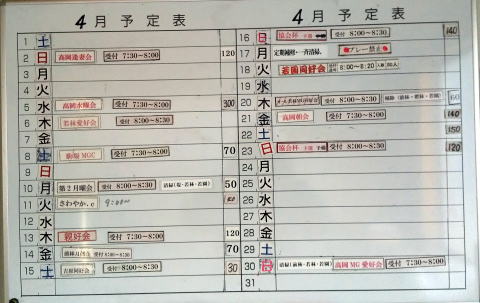 4月予定表
1 土
2 日 高岡逢妻会 受付 7:30〜8:00 120
3 月
4 火
5 水 高岡水曜会 受付 7:30〜8:00 300
6 木 若林愛好会 受付 8:00〜8:30
7 金
8 土 駒場MGC 受付 7:30〜8:00 70
9 日
10 月 第2月曜会 受付 8:00〜8:30 50
11 火 さわやか.c 9:00〜
12 水
13 木 親好会 受付 7:30〜8:00 120
14 金 受付 8:00〜8:30 70
15 土 吉原同好会 受付 8:00〜8:30 30
4月予定表
16 日 協会杯 予選 受付 8:00〜8:30 140
17 月 定期補修・一斉清掃、 プレー禁止
18 火 若園同好会 受付 8:00〜8:20
19 水
20 木 受付 7:30〜8:00 60
21 金 高岡朝会 受付 7:30〜8:00 140
22 土 150
23 日 協会杯 受付 7:30〜8:00 120
24 月
25 火
26 水
27 木
28 金
29 土
30 日 清掃(前林・若林・若園) 高岡MG愛好会 受付 7:30〜8:00
31